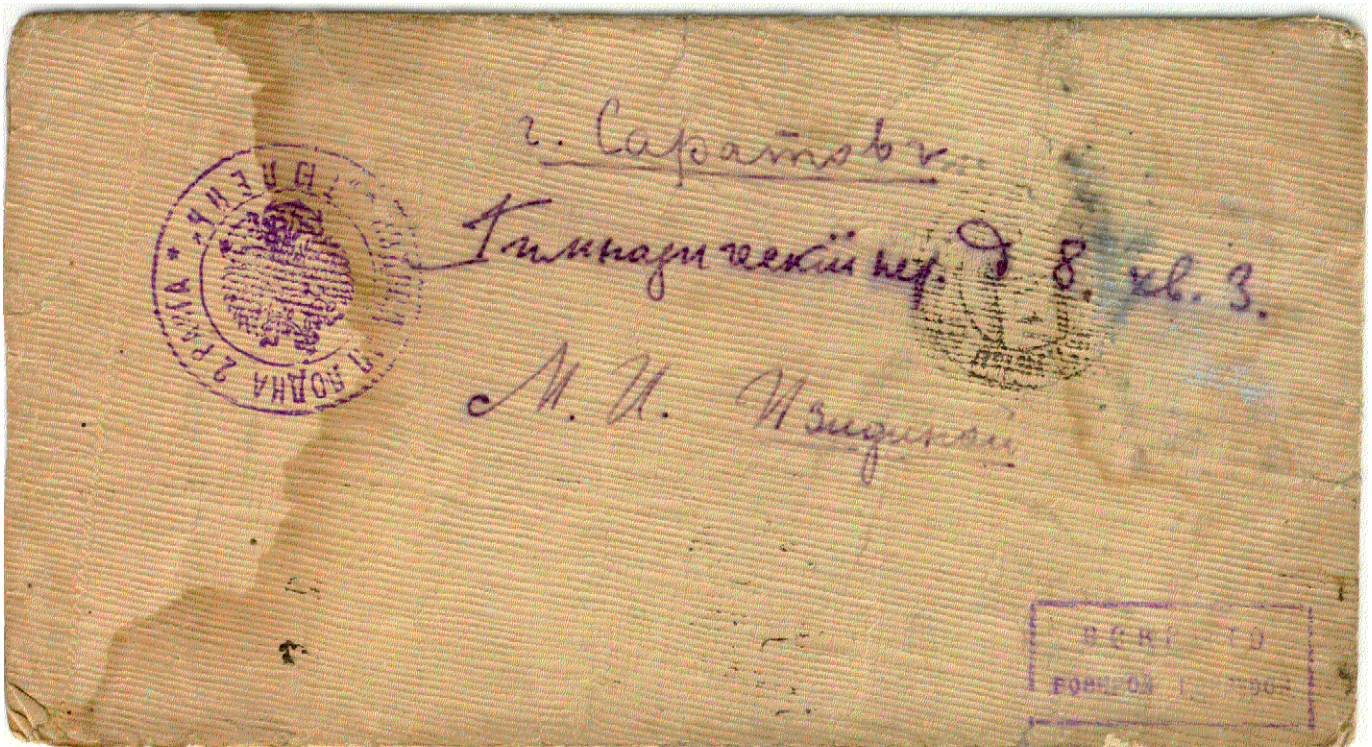 г. Саратовъ
Гимназическій пер. д 8. кв. 3.
М. И. Изидиной
"ТЮЛЕНЬ"
2 РАНГА *
ВСКРЫТО
ВОЕННОЙ ЦЕНЗУРОЙ